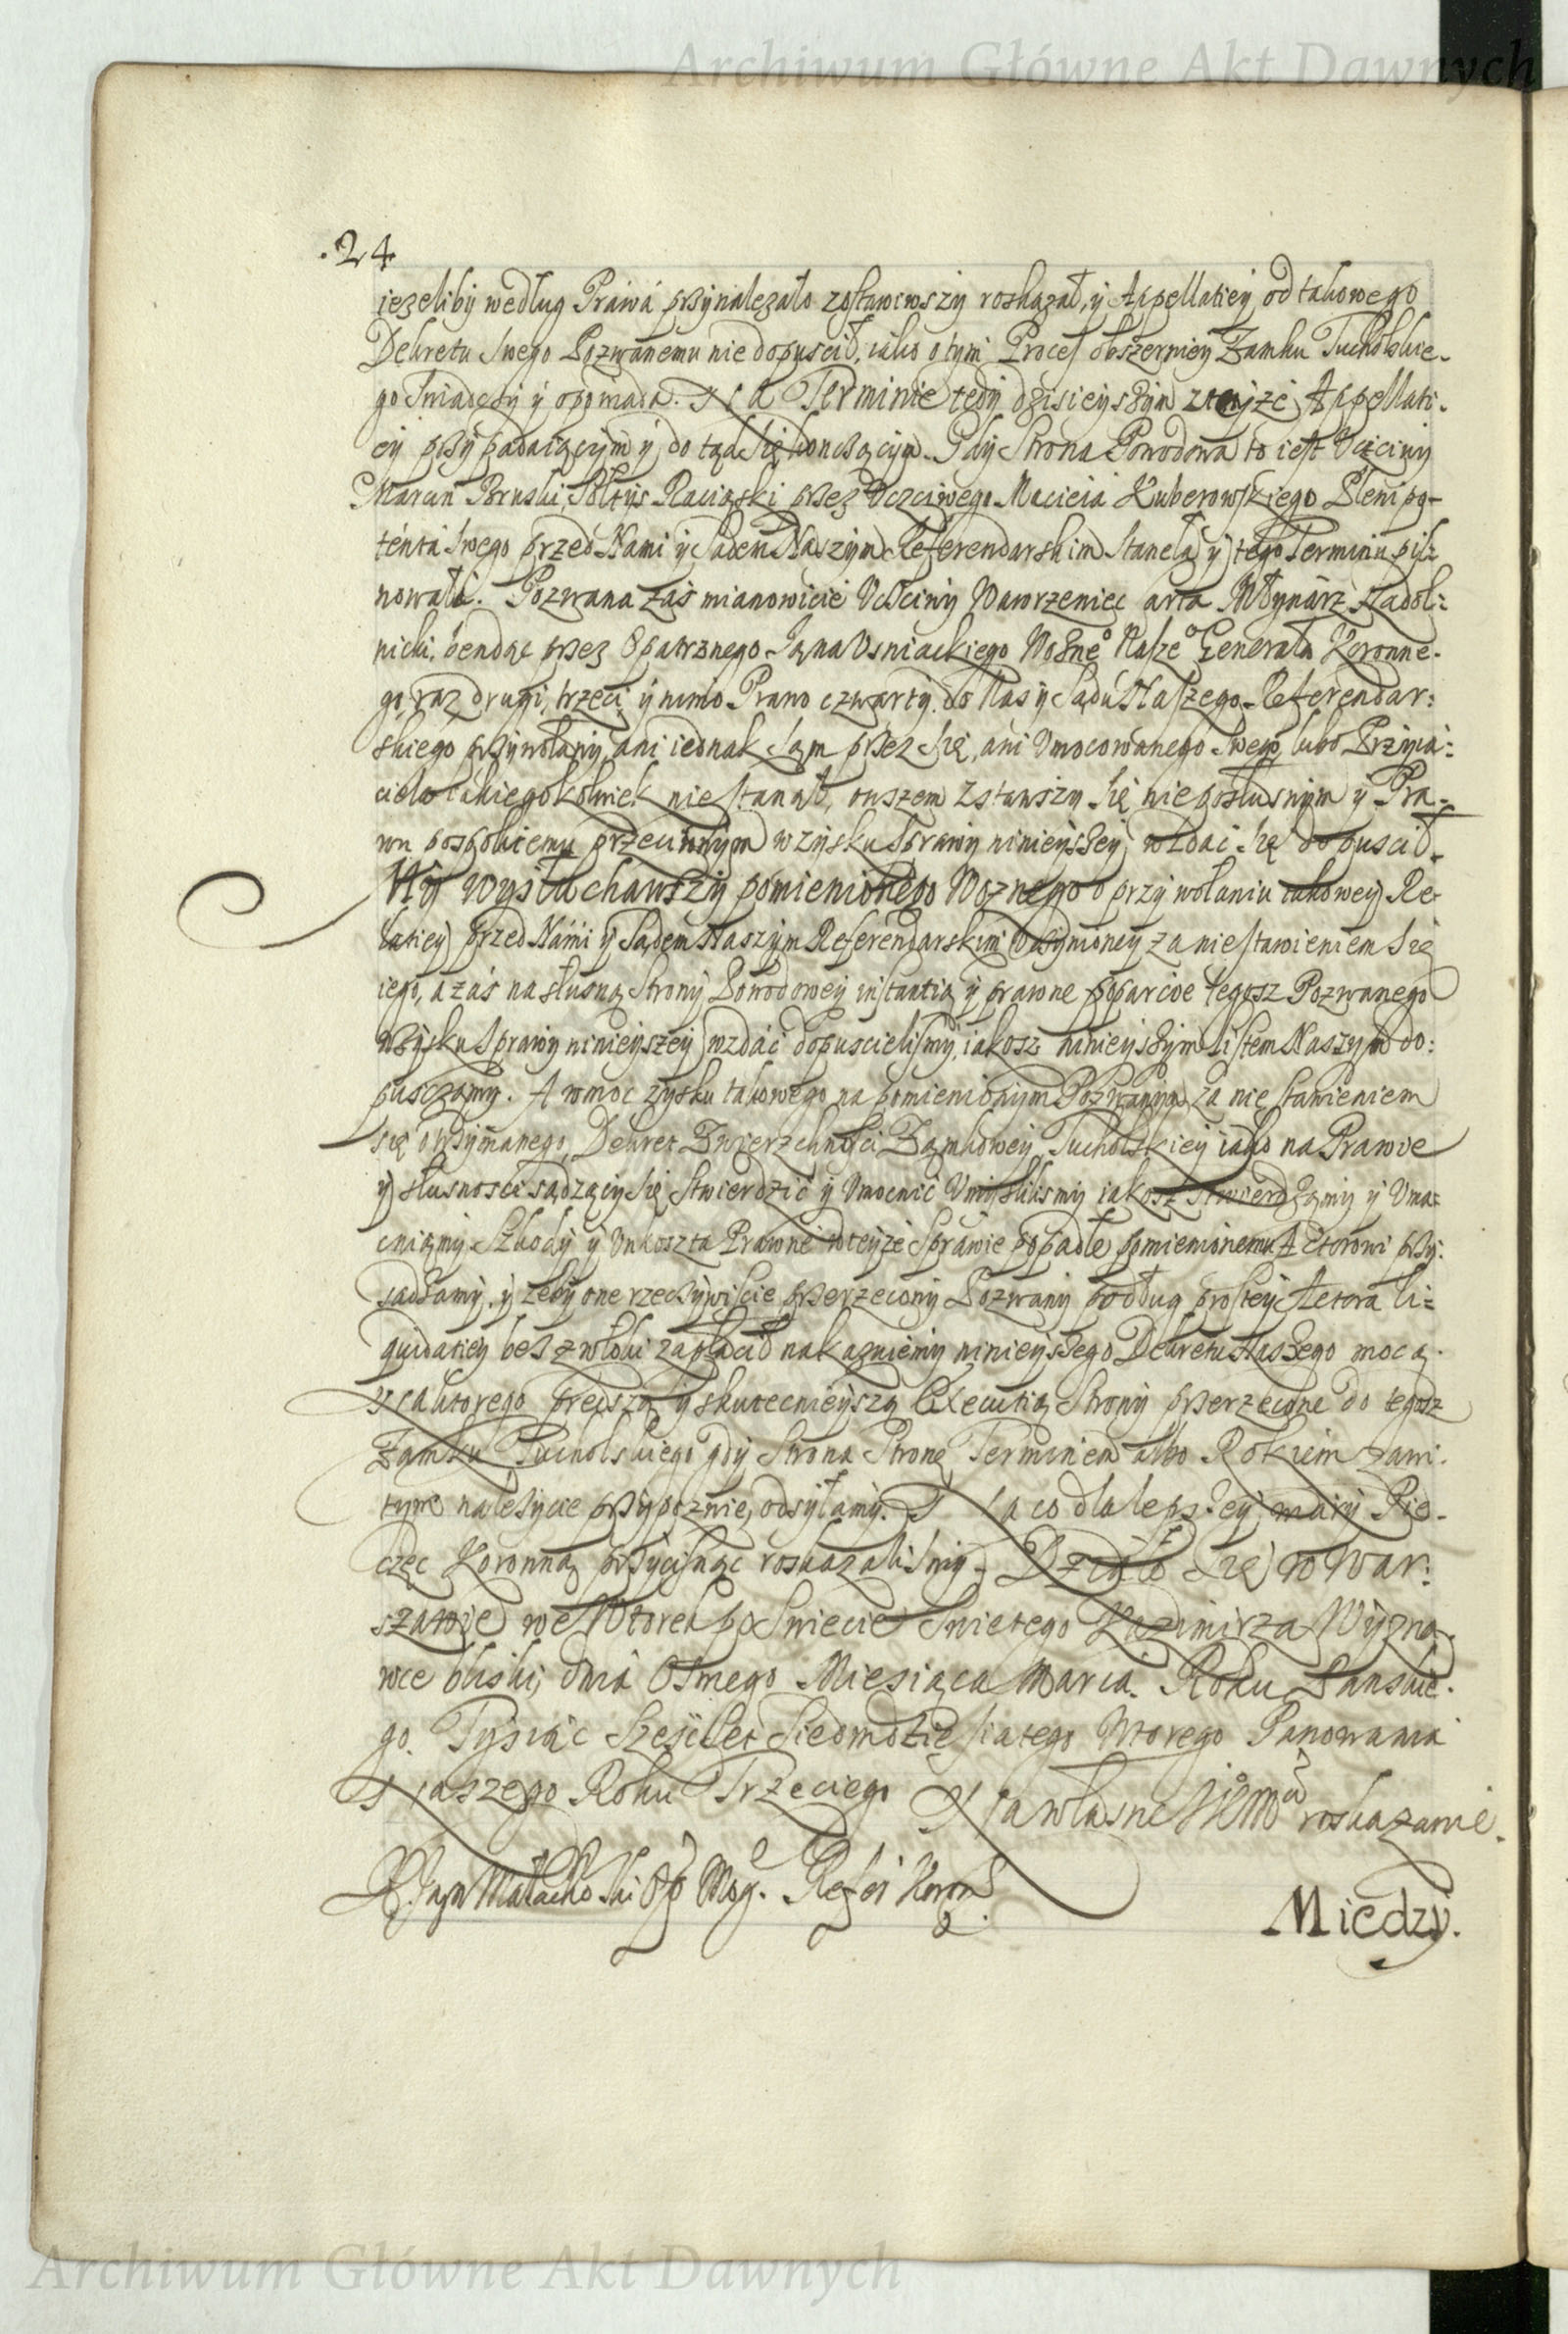 Archiwum Główne Akt Dawnych
.24
iezeliby według Prawa przynalezało zostawiwszy roskazał, y Appellatiey od takowego
Dekretu swego Pozwanemu nie dopuscił, iako o tym Proces obszerniey Zamku Tucholskie-
go swiadczy y opowiada. Na Terminie tedy dzisieyszym z teyże Appellati-
ey przypadaiącym y do tąd się kończącym. Gdy Strona Powodowa to iest Uczciwy
Marcin Bruski, Sołtys Raciąski przez Uczciwego Macieia Kuberowskiego Plenipo-
tenta swego przed Nami y Sądem Naszym Referendarskim Staneła y tego Terminu pil-
nowała. Pozwana zaś mianowicie Uczciwy Wawrzeniec arta Młynarz Nadol-
nicki, bendąc przez Opatrznego Jana Usniackiego Woźneº Naszeº Generała Koronne-
go, raz drugi, trzeci y nimo Prawo czwarty, do Nas y Sądu Naszego Referendar:
skiego przywołany, ani iednak sam przez się, ani Umocowanego Swego, lubo Przyia:
ciela iakiegokolwiek nie stanął, owszem zstawszy się nieposłusnym y Pra-
wu pospolitemu przeciwnym w zysku sprawy ninieyszey wzdać się dopuscił.
My wysłuchawszy pomienionego Woznego o przywołaniu takowey Re-
latiey przed Nami y Sądem Naszym Referendarskim uczynioney za niestawieniem się
iego, a zaś na słusną Strony Powodowey instantią y prawne poparcie tegosz Pozwanego
w zysku sprawy ninieyszey wzdać dopuscielismy, iakosz ninieyszym Listem Naszym do:
pusczamy. A w moc zysku takowego na pomienionym Pozwanym za nie stawieniem
się otrzymanego, Dekret Zwierzchności Zamkowey Tucholskiey iako na Prawie
y słusnosci sądzący się Stwierdzić y Umocnić Umyslilismy iakosz Stwierdzamy y Uma-
cniamy. Szkody y Unkoszta Prawne w teyże Sprawie popadłe pomienionemu Actorowi przy:
sądzamy, y żeby one rzeczywiscie przerzeczony Pozwany podług prostey Actora li-
quidatiey bez zwłoki zapłacił nakazuiemy ninieyszego Dekretu Naszego mocą.
Na ktorego prętszą y skutecnieyszą Executią Strony przerzeczone do tegosz
Zamku Tucholskiego gdy Strona Stronę Terminem albo Rokiem zawi-
tym należycie przypozwie, odsyłamy. Na co dla lepszey wiary Pie-
częc Koronną przycisnąc roskazalismy. Działo się w War:
szawie we Wtorek po Swiecie Swietego Kazimirza Wyzna-
wce bliski, dnia Osmego Miesiąca Marca. Roku Panskie-
go. Tysiąc Szescset Siedmdziesiatego Wtorego Panowania
Naszego Roku Trzeciego Na własne JKMci roskazanie.
X. Jan Małachoski Op. Mog. Refer. Koron.
Miedzy.
Archiwum Główne Akt Dawnych